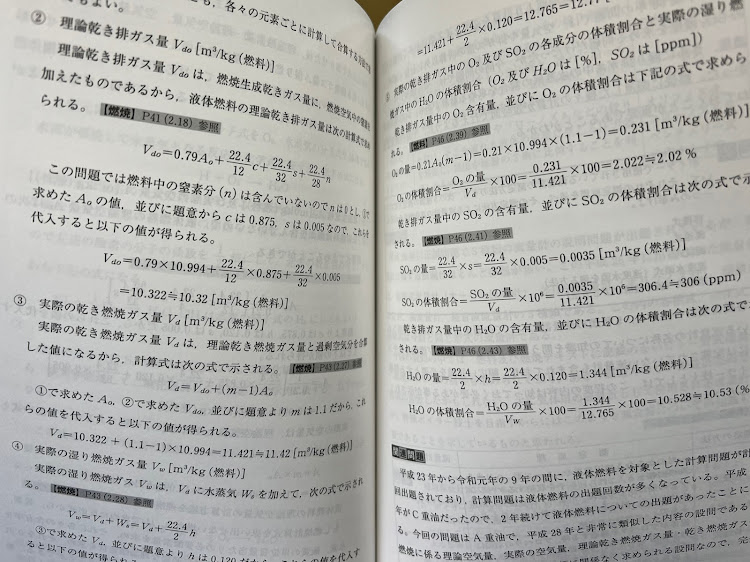 各々の元素ごとに計算して合算する
② 理論乾き排ガス量 Vdo [m³/kg (燃料)]
理論乾き排ガス量 Vdo は，燃焼生成乾きガス量に，燃焼空気中の
加えたものであるから，液体燃料の理論乾き排ガス量は次の計算式で求め
られる。【燃焼】P41 (2.18) 参照
Vdo=0.79Ao+22.4/12 c+22.4/32 s+22.4/28 n
この問題では燃料中の窒素分 (n) は含んでいないので n は 0 とし，
求めた Ao の値，並びに題意から c は 0.875，s は 0.005 なので，これらを
代入すると以下の値が得られる。
Vdo=0.79×10.994+22.4/12×0.875+22.4/32×0.005
=10.322≒10.32 [m³/kg (燃料)]
③ 実際の乾き燃焼ガス量 Vd [m³/kg (燃料)]
実際の乾き燃焼ガス量 Vd は，理論乾き燃焼ガス量と過剰空気分を合算
した値になるから，計算式は次の式で示される。【燃焼】P43 (2.27) 参照
Vd=Vdo+(m−1)Ao
①で求めた Ao，②で求めた Vdo，並びに題意より m は 1.1 だから，これ
らの値を代入すると以下の値が得られる。
Vd=10.322+(1.1−1)×10.994=11.421≒11.42 [m³/kg (燃料)]
④ 実際の湿り燃焼ガス量 Vw [m³/kg (燃料)]
実際の湿り燃焼ガス Vw は，Vd に水蒸気 Ws を加えて，次の式で示され
る。【燃焼】P43 (2.28) 参照
Vw=Vd+Ws=Vd+22.4/2 h
③で求めた Vd，並びに題意より h は 0.120 だから，これらの値を代入す
ると以下の値が得られる
=11.421+22.4/2×0.120=12.765≒12.77
実際の乾き排ガス中の O₂ 及び SO₂ の各成分の体積割合と実際の湿り燃
焼ガス中の H₂O の体積割合 (O₂ 及び H₂O は [%]，SO₂ は [ppm])
乾き排ガス量中の O₂ 含有量，並びに O₂ の体積割合は下記の式で求めら
れる。【燃焼】P46 (2.39) 参照
O₂の量=0.21Ao(m−1)=0.21×10.994×(1.1−1)=0.231 [m³/kg (燃料)]
O₂の体積割合=O₂の量/Vd×100=0.231/11.421×100=2.022≒2.02 %
乾き排ガス量中の SO₂ の含有量，並びに SO₂ の体積割合は次の式で示
される。【燃焼】P46 (2.41) 参照
SO₂の量=22.4/32×s=22.4/32×0.005=0.0035 [m³/kg (燃料)]
SO₂の体積割合=SO₂の量/Vd×10⁶=0.0035/11.421×10⁵=306.4≒306 (ppm)
乾き排ガス量中の H₂O の含有量，並びに H₂O の体積割合は次の式で
される。【燃焼】P46 (2.43) 参照
H₂Oの量=22.4/2×h=22.4/2×0.120=1.344 [m³/kg (燃料)]
H₂Oの体積割合=H₂Oの量/Vw×100=1.344/12.765×100=10.528≒10.53 (%
関連問題
平成 23 年から令和元年の 9 年の間に，液体燃料を対象とした計算問題が計
回出題されており，計算問題は液体燃料の出題回数が多くなっている。平成
年が C 重油だったので，2 年続けて液体燃料についての出題があったことに
る。今回の問題は A 重油で，平成 28 年と非常に類似した内容の設問である
燃焼に係る理論空気量，実際の空気量，理論乾き燃焼ガス量・乾き燃焼ガス
に関係なく求められる設問なので，完